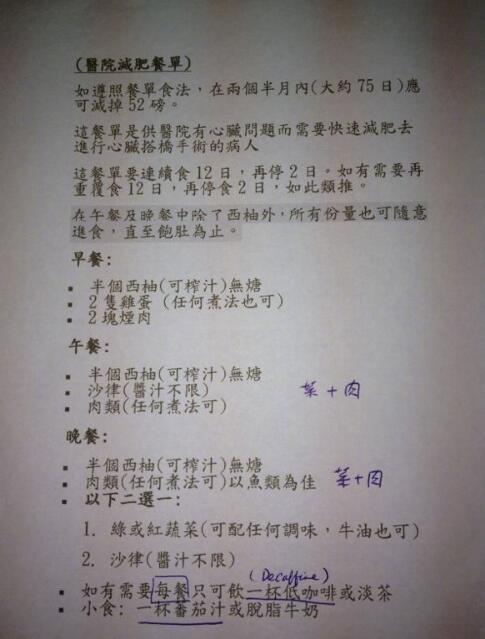 (醫院減肥餐單)
如遵照餐單食法,在兩個半月內(大約75日)應
可減掉52磅。
這餐單是供醫院有心臟問題而需要快速減肥去
進行心臟搭橋手術的病人
這餐單要連續食12日,再停2日。如有需要再
重覆食12日,再停食2日,如此類推。
在午餐及晚餐中除了西柚外,所有份量也可隨意
進食,直至飽肚為止。
早餐:
▪ 半個西柚(可榨汁)無糖
▪ 2隻雞蛋 (任何煮法也可)
▪ 2塊煙肉
午餐:
▪ 半個西柚(可榨汁)無糖
▪ 沙律(醬汁不限) 菜+肉
▪ 肉類(任何煮法可)
晚餐:
▪ 半個西柚(可榨汁)無糖
▪ 肉類(任何煮法可)以魚類為佳 菜+肉
▪ 以下二選一:
1. 綠或紅蔬菜(可配任何調味,牛油也可)
2. 沙律(醬汁不限)
(Decaffine)
▪ 如有需要每餐只可飲一杯低咖啡或淡茶
▪ 小食: 一杯番茄汁或脫脂牛奶